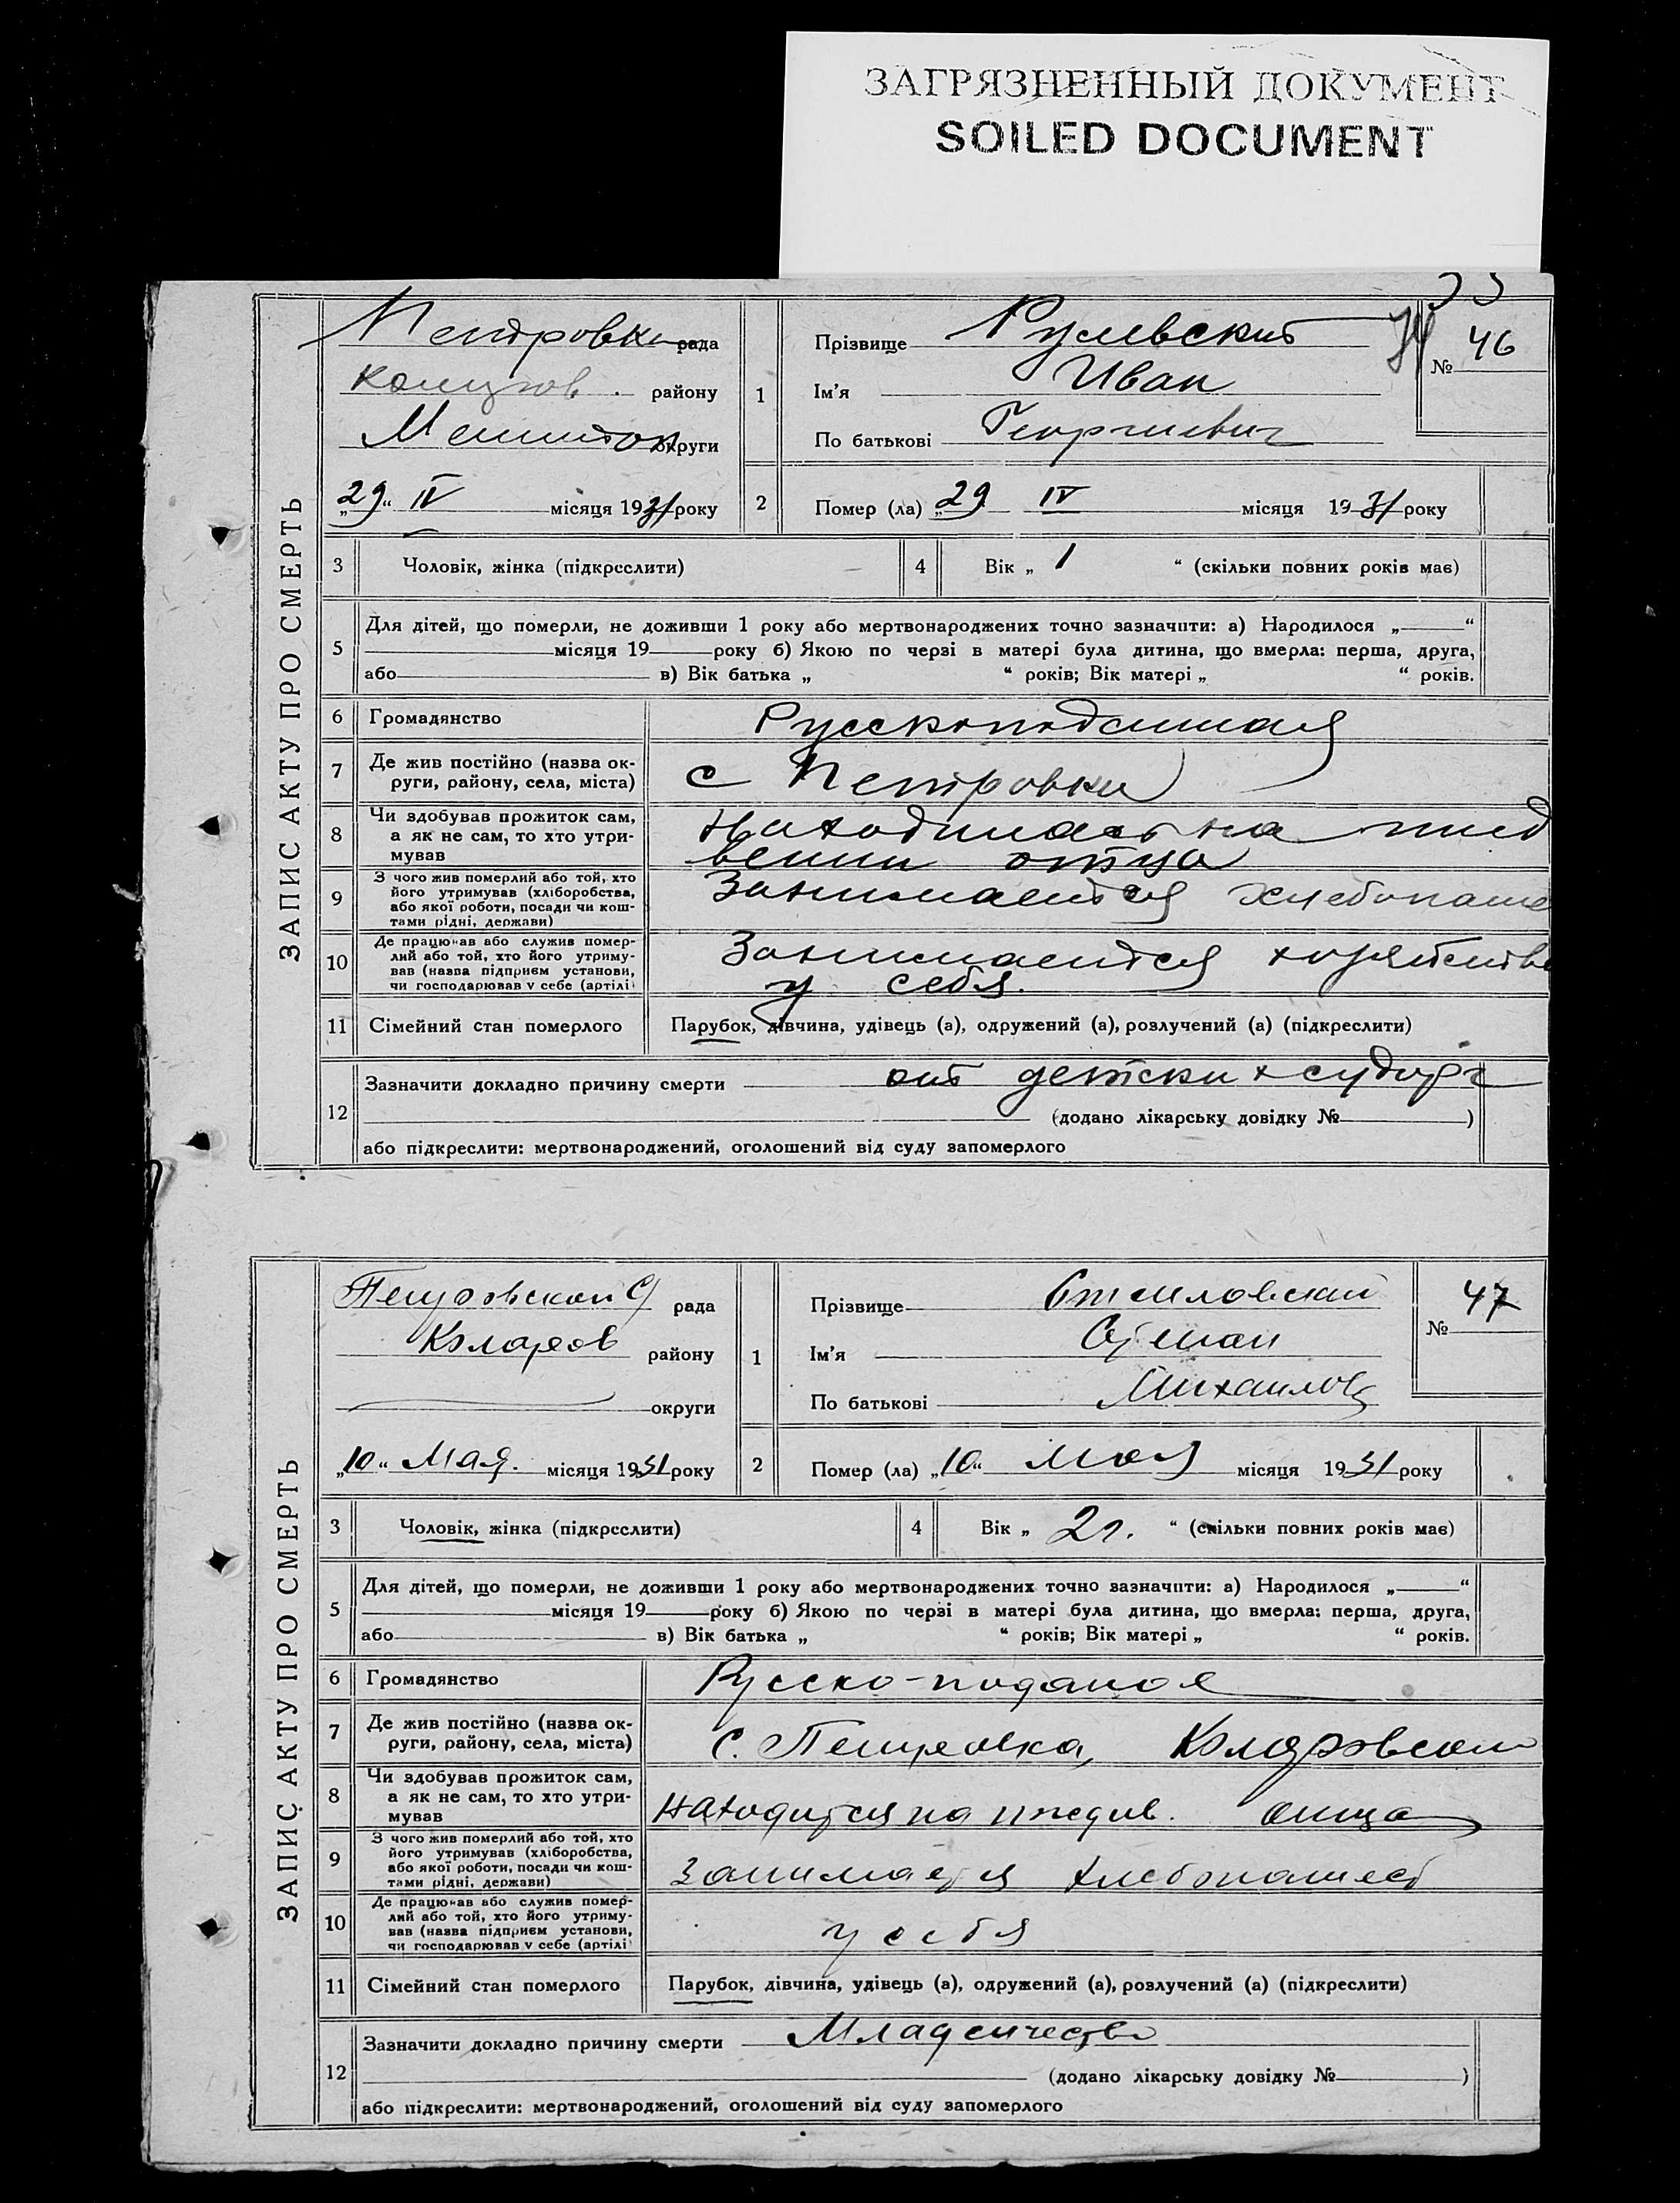 ЗАГРЯЗНЕННЫЙ ДОКУМЕНТ
SOILED DOCUMENT
ЗАПИС АКТУ ПРО СМЕРТЬ
рада
району
округи
„29“ IV місяця 1931 року
1
Прізвище
Ім'я Иван
По батькові Георгиевич
№ 46
2
Помер (ла) „29 IV місяця 1931 року
3 Чоловік, жінка (підкреслити)
4 Вік „ 1 “ (скільки повних років має)
5
Для дітей, що померли, не доживши 1 року або мертвонароджених точно зазначити: а) Народилося „ “
місяця 19 року б) Якою по черзі в матері була дитина, що вмерла: перша, друга,
або в) Вік батька „ “ років; Вік матері „ “ років.
6 Громадянство
7 Де жив постійно (назва ок-
руги, району, села, міста)
с Петровки
8 Чи здобував прожиток сам,
а як не сам, то хто утри-
мував
на
отца
9 З чого жив померлий або той, хто
його утримував (хліборобства,
або якої роботи, посади чи кош-
тами рідні, держави)
Занимается
10 Де працював або служив помер-
лий або той, хто його утриму-
вав (назва підприєм установи,
чи господарював у себе (артілі
Занимается
у себя.
11 Сімейний стан померлого
Парубок, дівчина, удівець (а), одружений (а), розлучений (а) (підкреслити)
12
Зазначити докладно причину смерти от детских судорг
(додано лікарську довідку № )
або підкреслити: мертвонароджений, оголошений від суду запомерлого
ЗАПИС АКТУ ПРО СМЕРТЬ
рада
Коларов району
округи
„10“ Мая. місяця 1931 року
1
Прізвище
Ім'я
По батькові
№ 47
2
Помер (ла) „10“ Мая місяця 1931 року
3 Чоловік, жінка (підкреслити)
4 Вік „ 2 г. “ (скільки повних років має)
5
Для дітей, що померли, не доживши 1 року або мертвонароджених точно зазначити: а) Народилося „ “
місяця 19 року б) Якою по черзі в матері була дитина, що вмерла: перша, друга,
або в) Вік батька „ “ років; Вік матері „ “ років.
6 Громадянство
7 Де жив постійно (назва ок-
руги, району, села, міста)
с. Петровка,
8 Чи здобував прожиток сам,
а як не сам, то хто утри-
мував
находится на иждив. отца
9 З чого жив померлий або той, хто
його утримував (хліборобства,
або якої роботи, посади чи кош-
тами рідні, держави)
Занимается
10 Де працював або служив помер-
лий або той, хто його утриму-
вав (назва підприєм установи,
чи господарював у себе (артілі
у себя
11 Сімейний стан померлого
Парубок, дівчина, удівець (а), одружений (а), розлучений (а) (підкреслити)
12
Зазначити докладно причину смерти Младенчество
(додано лікарську довідку № )
або підкреслити: мертвонароджений, оголошений від суду запомерлого